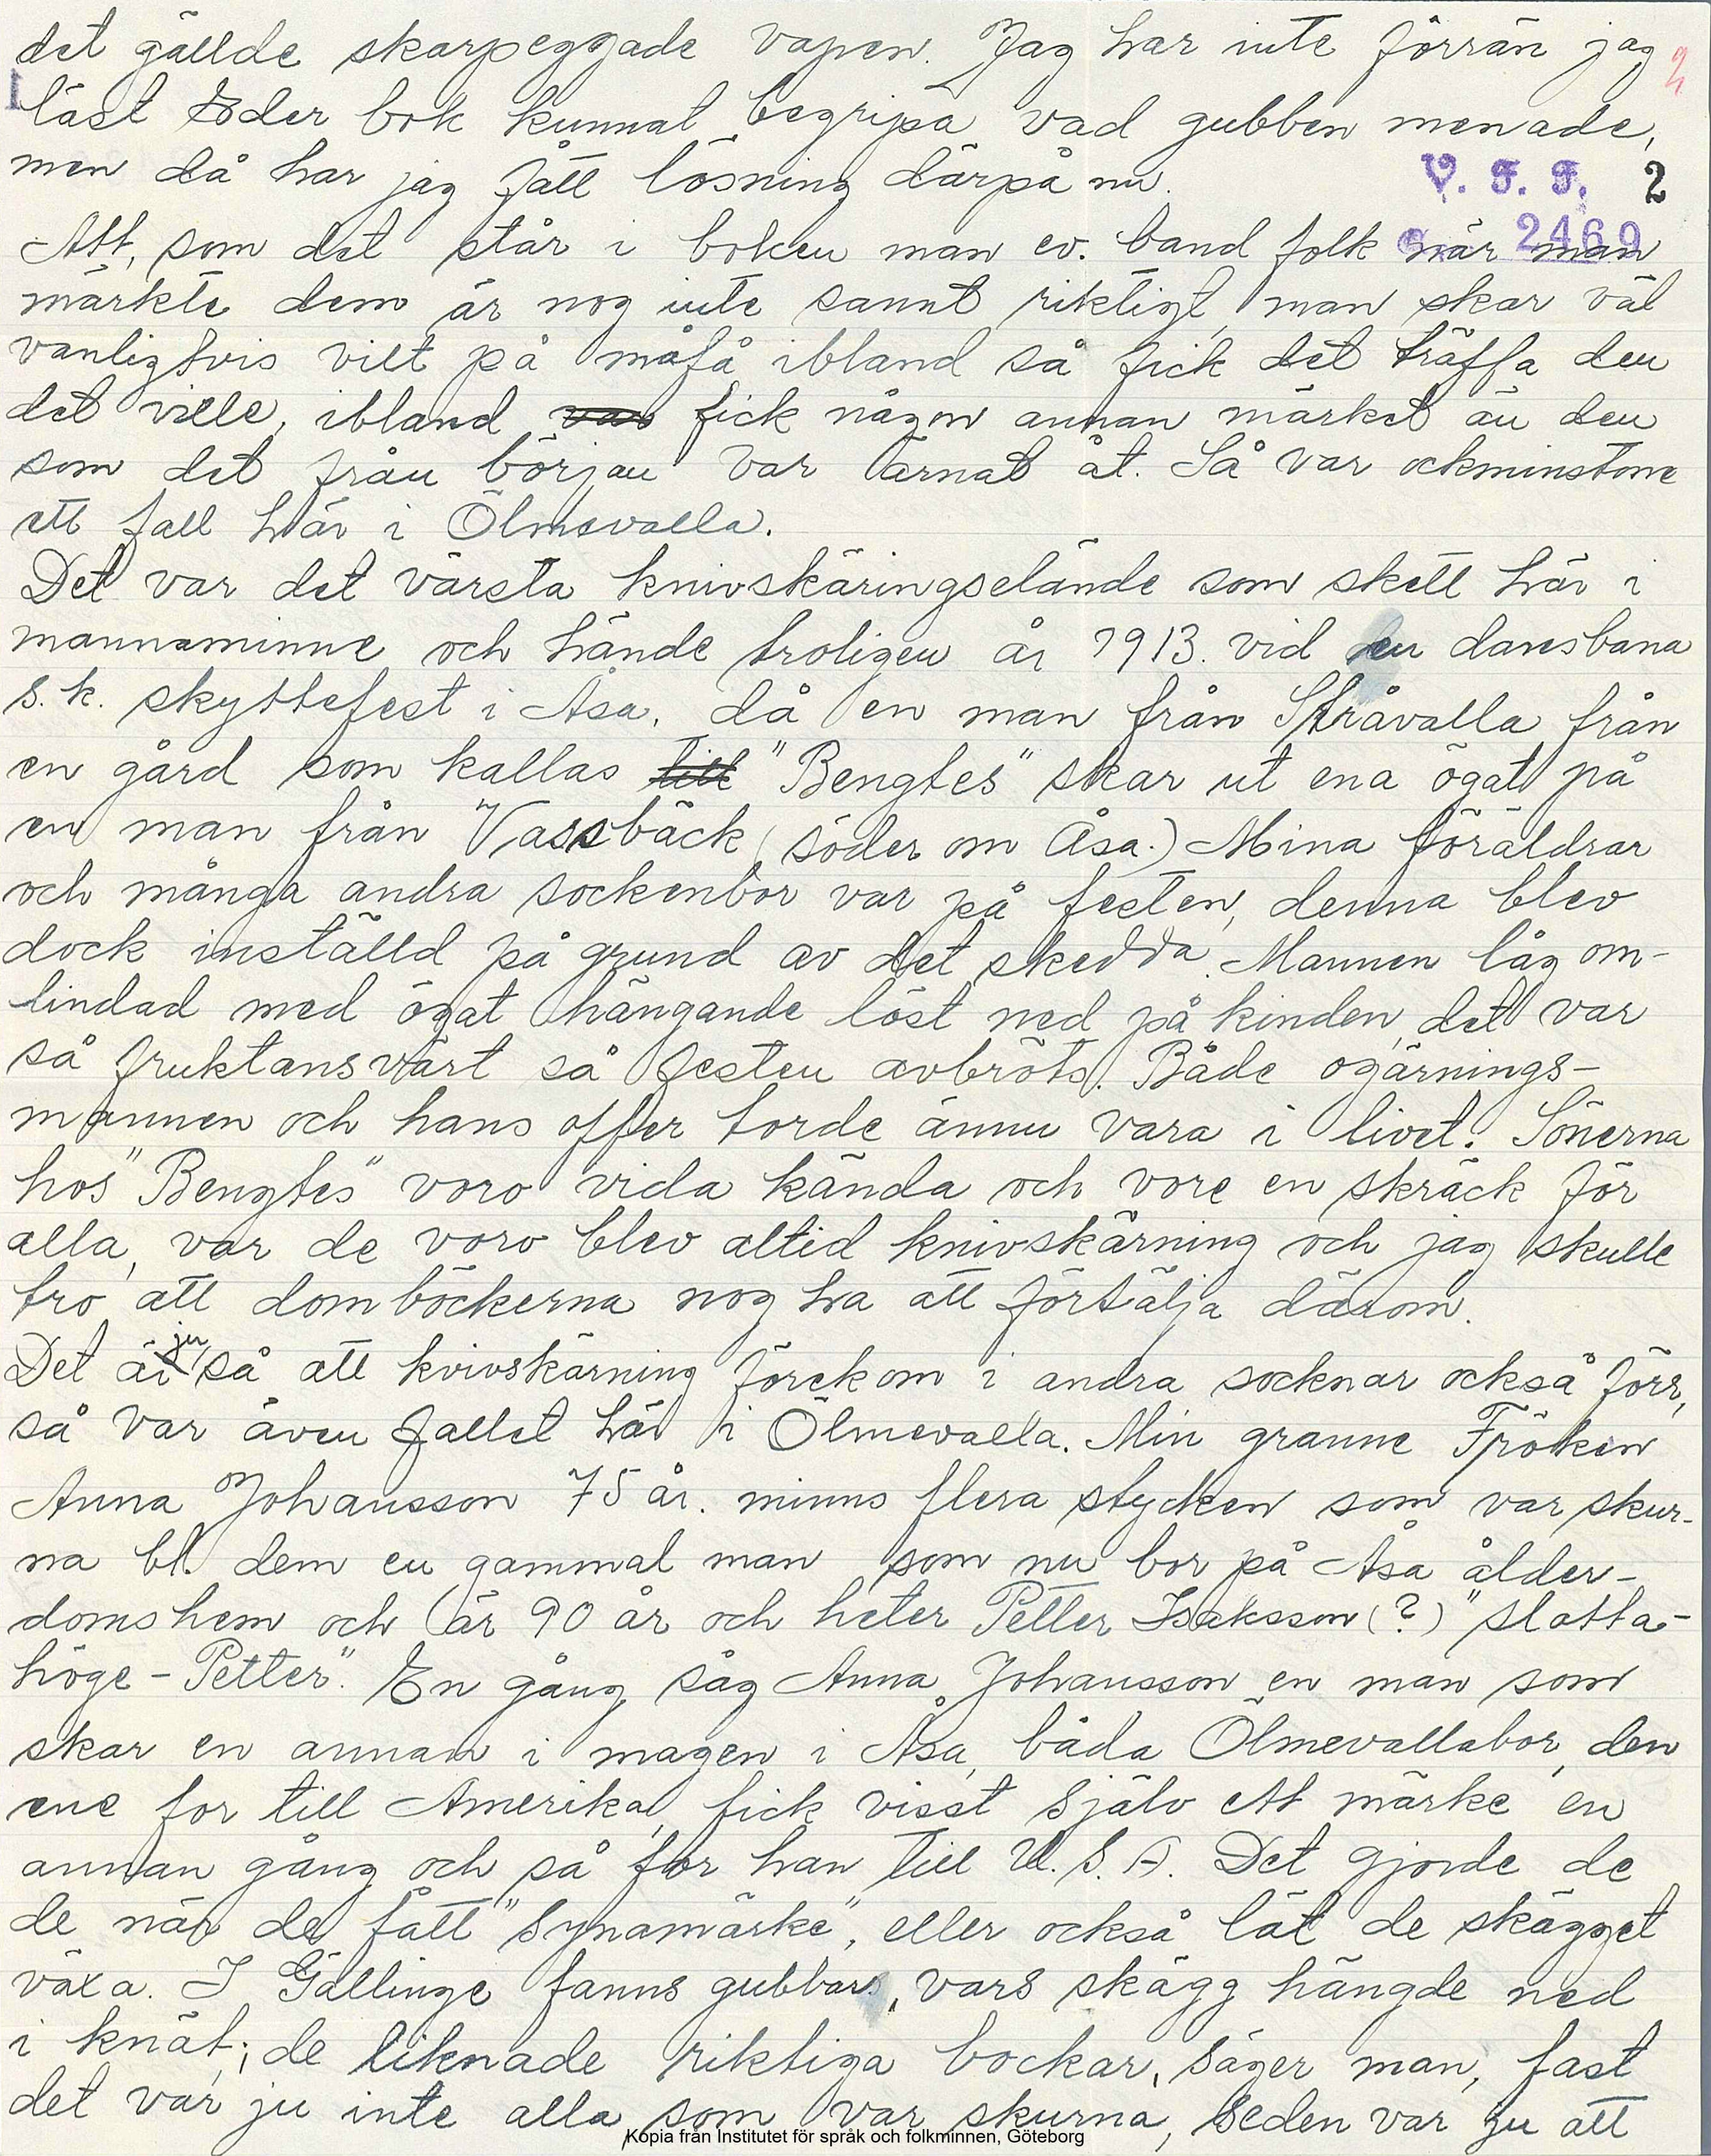 det gällde skarpeggade vapen. Jag har inte förrän jag 2
läst Eder bok kunnat begripa vad gubben menade,
men då har jag fått lösning därpå nu. V. F. F. 2
2469
Att, som det står i boken man ev. band folk när man
märkte dem är nog inte sannt riktigt, man skar väl
vanligtvis vilt på måfå ibland så fick det träffa den
det ville, ibland fick någon annan märket än den
som det från början var ärnat åt. Så var ockminstone
ett fall här i Ölmevalla.
Det var det värsta knivskäringselände som skett här i
mannaminne och hände troligen år 1913. vid en dansbana
s.k. skyttefest i Åsa, då en man från Stråvalla från
en gård som kallas till "Bengtes" skar ut ena ögat på
en man från Vassbäck (söder om Åsa.) Mina föräldrar
och många andra sockenbor var på festen, denna blev
dock inställd på grund av det skedda. Mannen låg om-
lindad med ögat hängande löst ned på kinden, det var
så fruktansvärt så festen avbröts. Både ogärnings-
mannen och hans offer torde ännu vara i livet. Sönerna
hos "Bengtes" voro vida kända och vore en skräck för
alla, var de voro blev altid knivskärning och jag skulle
tro att domböckerna nog ha att förtälja därom.
Det är ju så att kvivskärning förekom i andra socknar också förr,
så var även fallet här i Ölmevalla. Min granne Fröken
Anna Johansson 75 år. minns flera stycken som var skur-
na bl. dem en gammal man som nu bor på Åsa ålder-
domshem och är 90 år och heter Petter Isaksson (?) "Slätta-
höge-Petter". En gång såg Anna Johansson en man som
skar en annan i magen i Åsa, båda Ölmevallabor, den
ene for till Amerika, fick visst själv ett märke en
annan gång och så for han till U.S.A. Det gjorde de
de när de fått "synamärke", eller också lät de skägget
växa. I Gällinge fanns gubbar, vars skägg hängde ned
i knät; de liknade riktiga bockar, säger man, fast
det var ju inte alla som var skurna, seden var ju att
Kopia från Institutet för språk och folkminnen, Göteborg